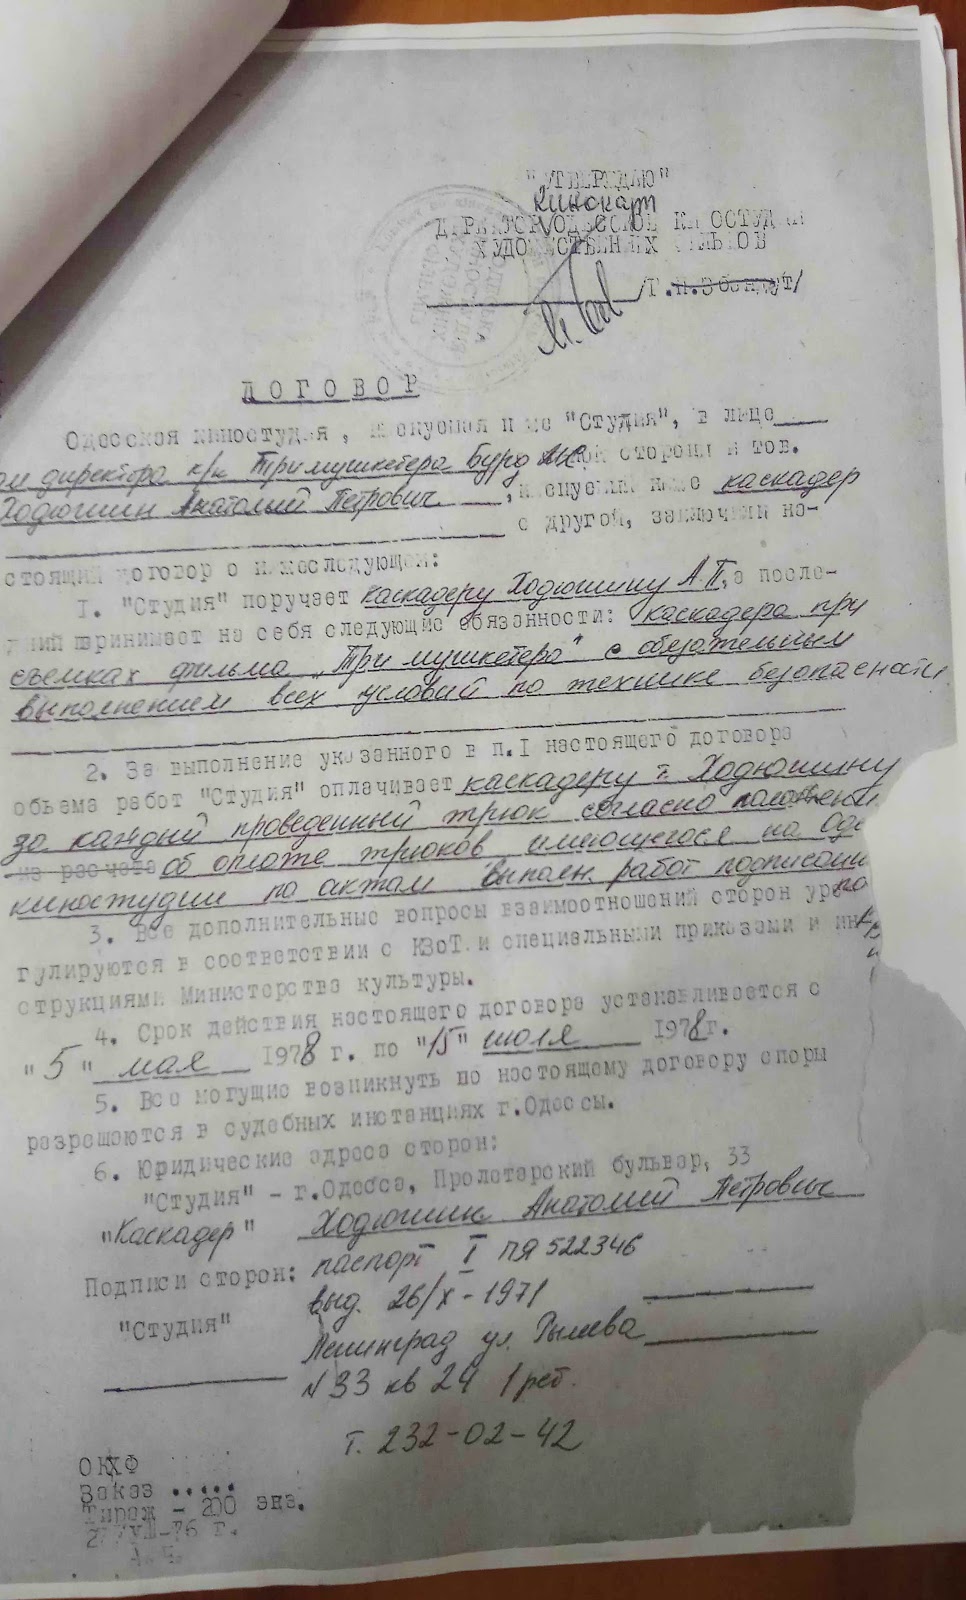 "УТВЕРЖДАЮ"
кинокарт
ДИРЕКТОР ОДЕССКОЙ КИНОСТУДИИ
ХУДОЖЕСТВЕННЫХ ФИЛЬМОВ
/Г.П.Збандут/
ДОГОВОР
Одесская киностудия, именуемая ниже "Студия", в лице
директора к/к Три мушкетера стороны и тов.
Ходюшин Анатолий Петрович, именуемый ниже каскадер
с другой, заключили на-
стоящий договор о нижеследующем:
1. "Студия" поручает каскадеру Ходюшину А.П., а после-
дний принимает на себя следующие обязанности: каскадера при
съемках фильма „Три мушкетера" с обязательным
выполнением всех условий по технике безопасности
2. За выполнение указанного в п.I настоящего договора
объема работ "Студия" оплачивает каскадеру т. Ходюшину
за каждый проведенный трюк согласно
из расчета об оплате трюков имеющегося на Оде
киностудии по актам выполн. работ
3. Все дополнительные вопросы взаимоотношений сторон уре-
гулируются в соответствии с КЗоТ и специальными приказами и ин-
струкциями Министерства культуры.
4. Срок действия настоящего договора устанавливается с
"5" мая 1978 г. по "15" июля 1978 г.
5. Все могущие возникнуть по настоящему договору споры
разрешаются в судебных инстанциях г.Одессы.
6. Юридические адреса сторон:
"Студия" - г.Одесса, Пролетарский бульвар, 33
"Каскадер" Ходюшин Анатолий Петрович
Подписи сторон: паспорт I ПЯ 522346
выд. 26/X-1971
"Студия"
Ленинград ул. Рылеева
N 33 кв 24 1 реб.
т. 232-02-42
ОКХФ
Заказ .....
Тираж - 200 экз.